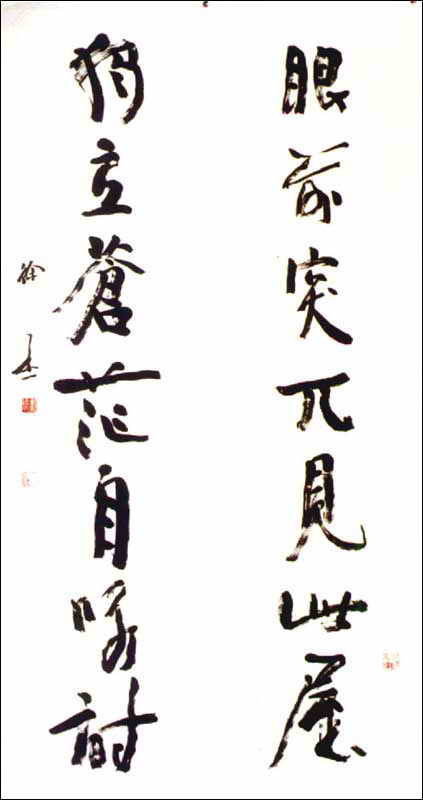 眼前突兀見此屋
獨立蒼茫自咏詩
徐